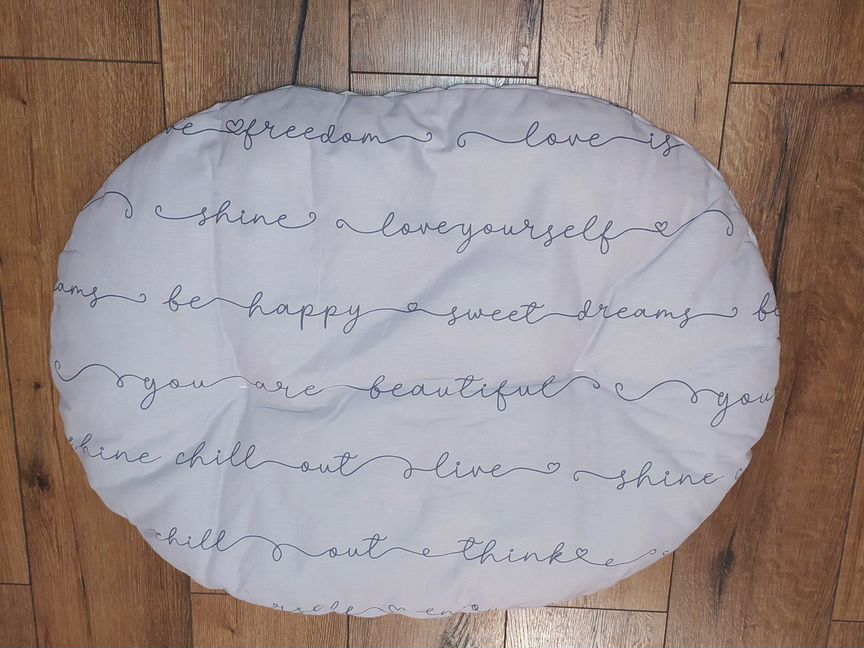 freedom love is
shine loveyourself
be happy sweet dreams
you are beautiful you
shine chill out live shine
chill out think